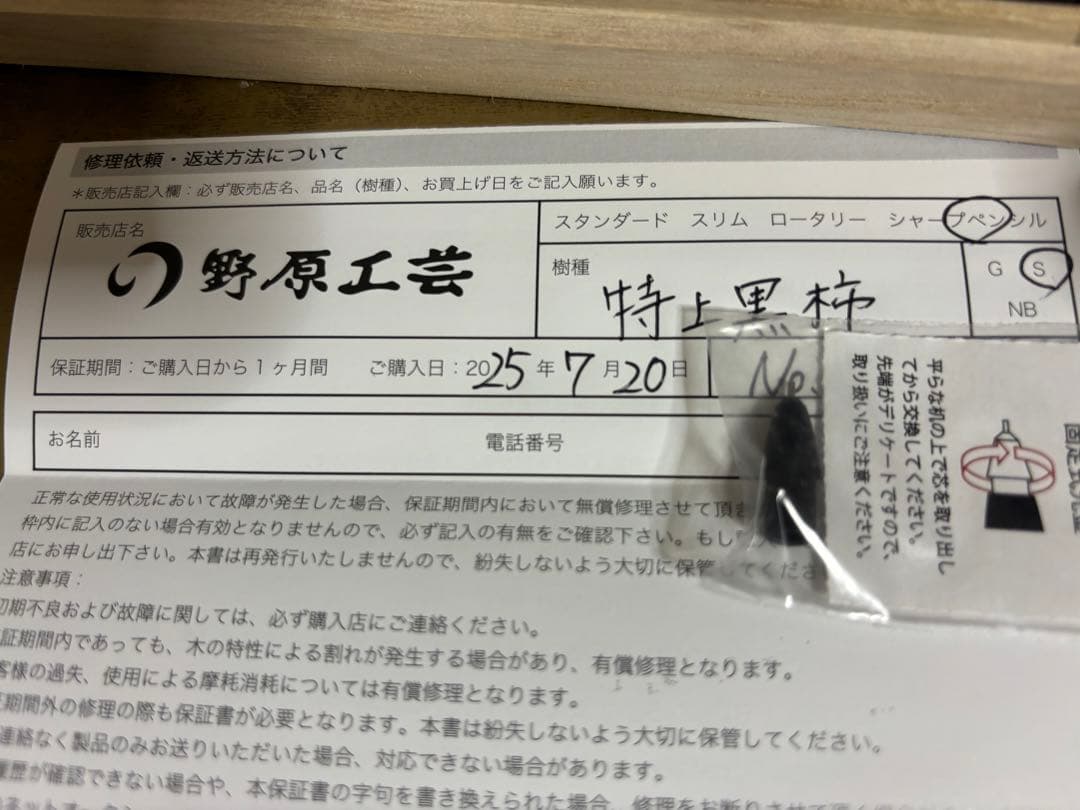 修理依頼・返送方法について
＊販売店記入欄：必ず販売店名、品名（樹種）、お買上げ日をご記入願います。
販売店名
野原工芸
スタンダード スリム ロータリー シャープペンシル
樹種
特上黒柿
G S
NB
保証期間：ご購入日から1ヶ月間 ご購入日：2025年7月20日
No.
お名前 電話番号
正常な使用状況において故障が発生した場合、保証期間内において無償修理させて頂き
枠内に記入のない場合有効となりませんので、必ず記入の有無をご確認下さい。もし
店にお申し出下さい。本書は再発行いたしませんので、紛失しないよう大切に保管してくださ
注意事項：
初期不良および故障に関しては、必ず購入店にご連絡ください。
証期間内であっても、木の特性による割れが発生する場合があり、有償修理となります。
客様の過失、使用による摩耗消耗については有償修理となります。
証期間外の修理の際も保証書が必要となります。本書は紛失しないよう大切に保管してください。
連絡なく製品のみお送りいただいた場合、対応できない場合があります。
履歴が確認できない場合や、本保証書の字句を書き換えられた場合、修理をお断りさせて頂く
平らな机の上で芯を取り出し
てから交換してください。
先端がデリケートですので、
取り扱いにご注意ください。